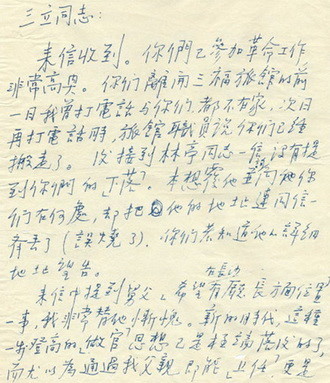 三立同志:
来信收到。你們已參加革命工作
非常高兴。你們離開三福旅館的前
一日我曾打電話与你們,都不在家,次日
再打電話時,旅館職員説你們已經
搬走了。後接到林亭同志一信,没有提
到你們的「下落」。本想寫他並問他你
們在何處,却把他的地址連同信一
齊丢了(誤燒了)。你們若知道他的詳細
地址望告。
来信中提到舅父「希望在長沙有厰長方面位置」
一事,我非常替他慚愧。新的時代,這種
一步登高的「做官」思想已是極端落後的了,
而尤以為通過我父親即能「上任」,更是